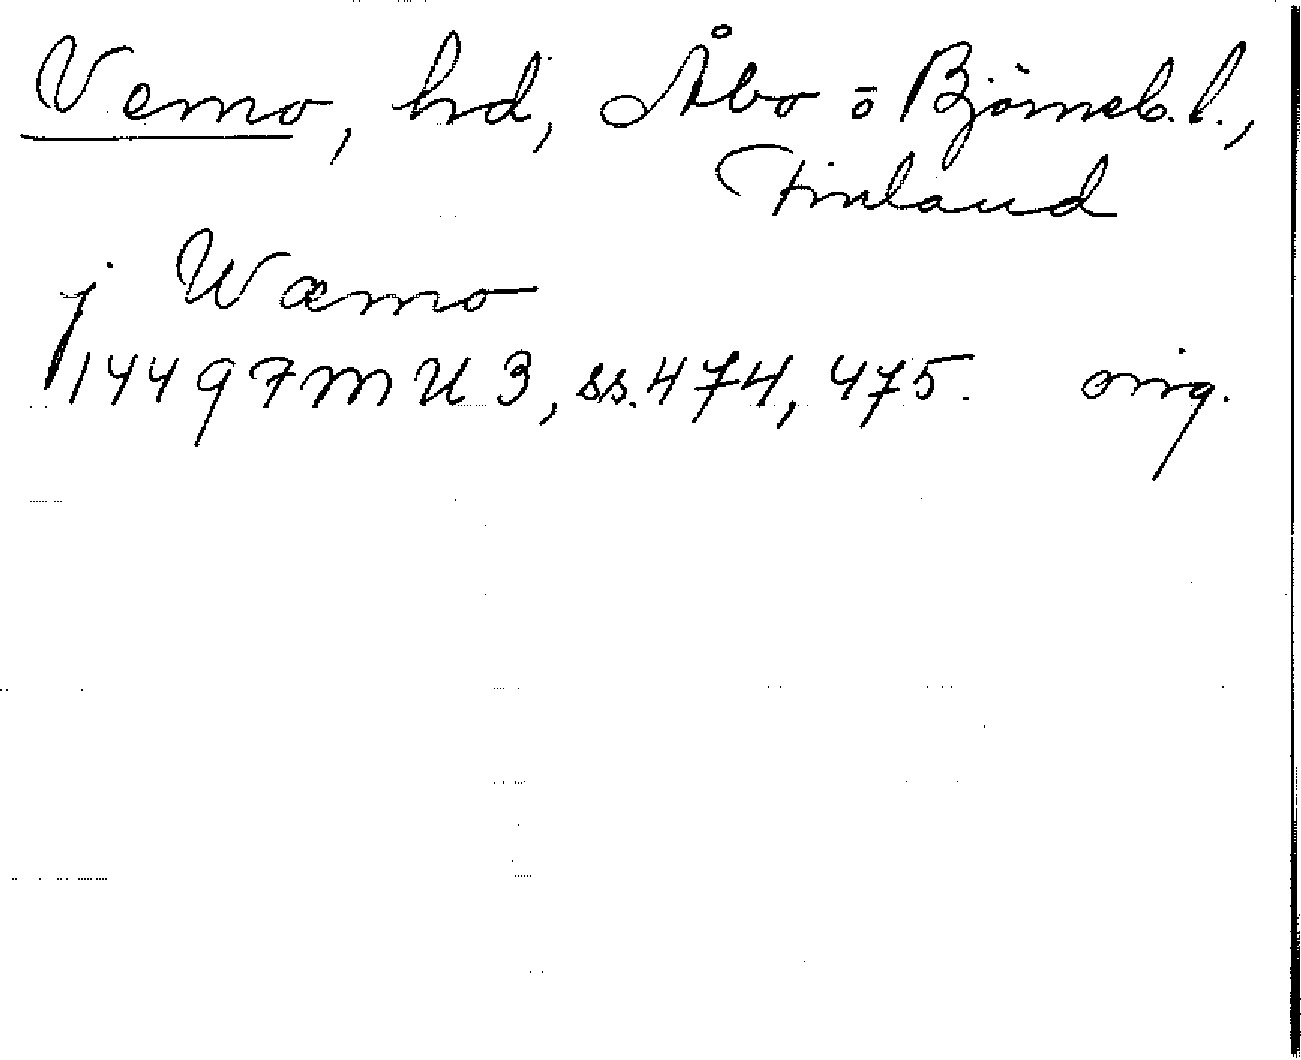 Vemo, hd, Åbo o Björneb. l.,
Finland
j Wæmo
1449 7/7 FMU 3, ss. 474, 475. orig.